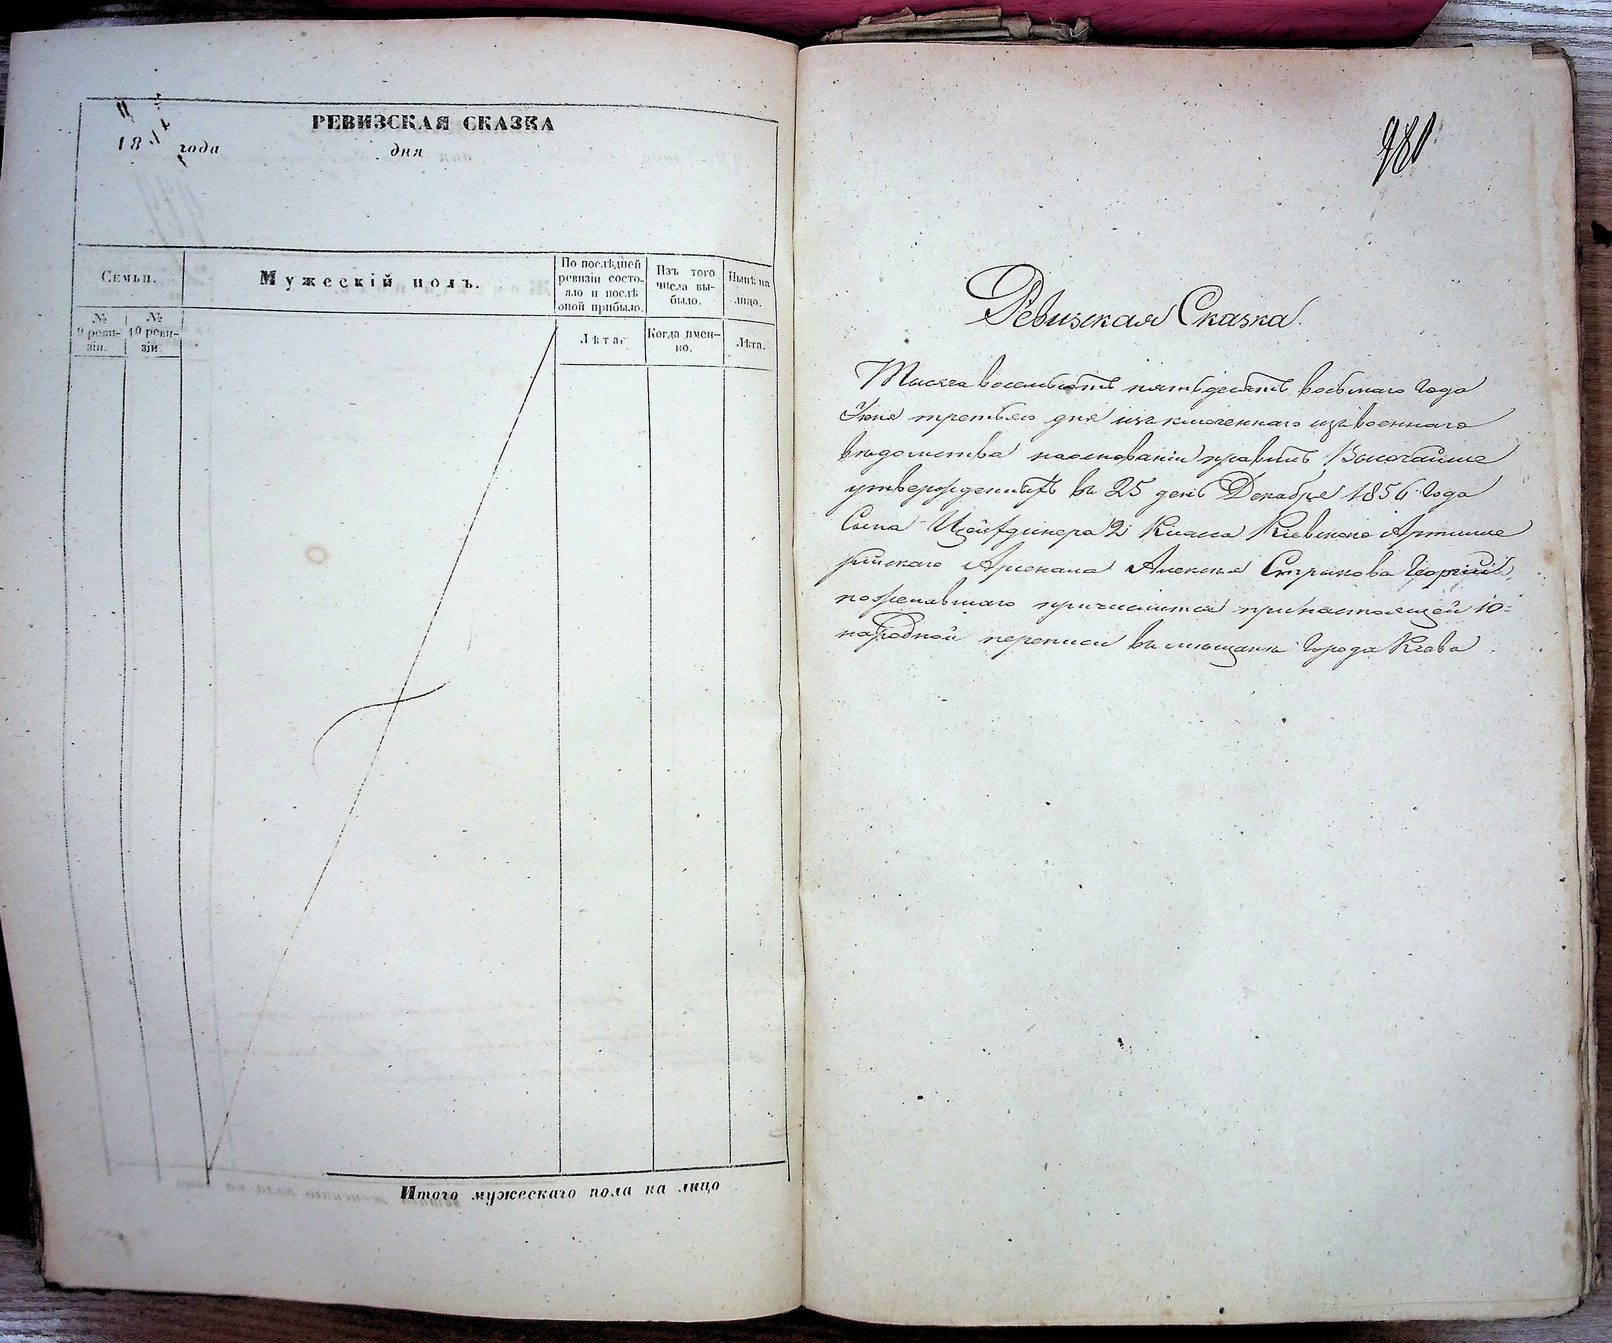 РЕВИЗСКАЯ СКАЗКА
18 года дня
Семьи.
Мужескій полъ.
По послѣдней
ревизіи состо-
яло и послѣ
оной прибыло.
Изъ того
числа вы-
было.
Нынѣ на
лицо.
№
9 реви-
зіи.
№
10 реви-
зіи
Лѣта.
Когда имен-
но.
Лѣта.
Итого мужескаго пола на лицо
980
Ревизская Сказка.
Тысяча восемьсотъ пятьдесятъ восьмаго Года
Іюня третьяго дня изключеннаго изъ военнаго
вѣдомства наосновании правилъ Высочайше
утвержденныхъ въ 25 день Декабря 1856 Года
Сына Цейгдинера 2 Класса Кіевскаго Артиле
рійскаго Арсенала Алексѣя Стрикова Георгій,
пожелавшаго причислится принастоящей 10:
народной переписи въ мѣщане Города Кіева